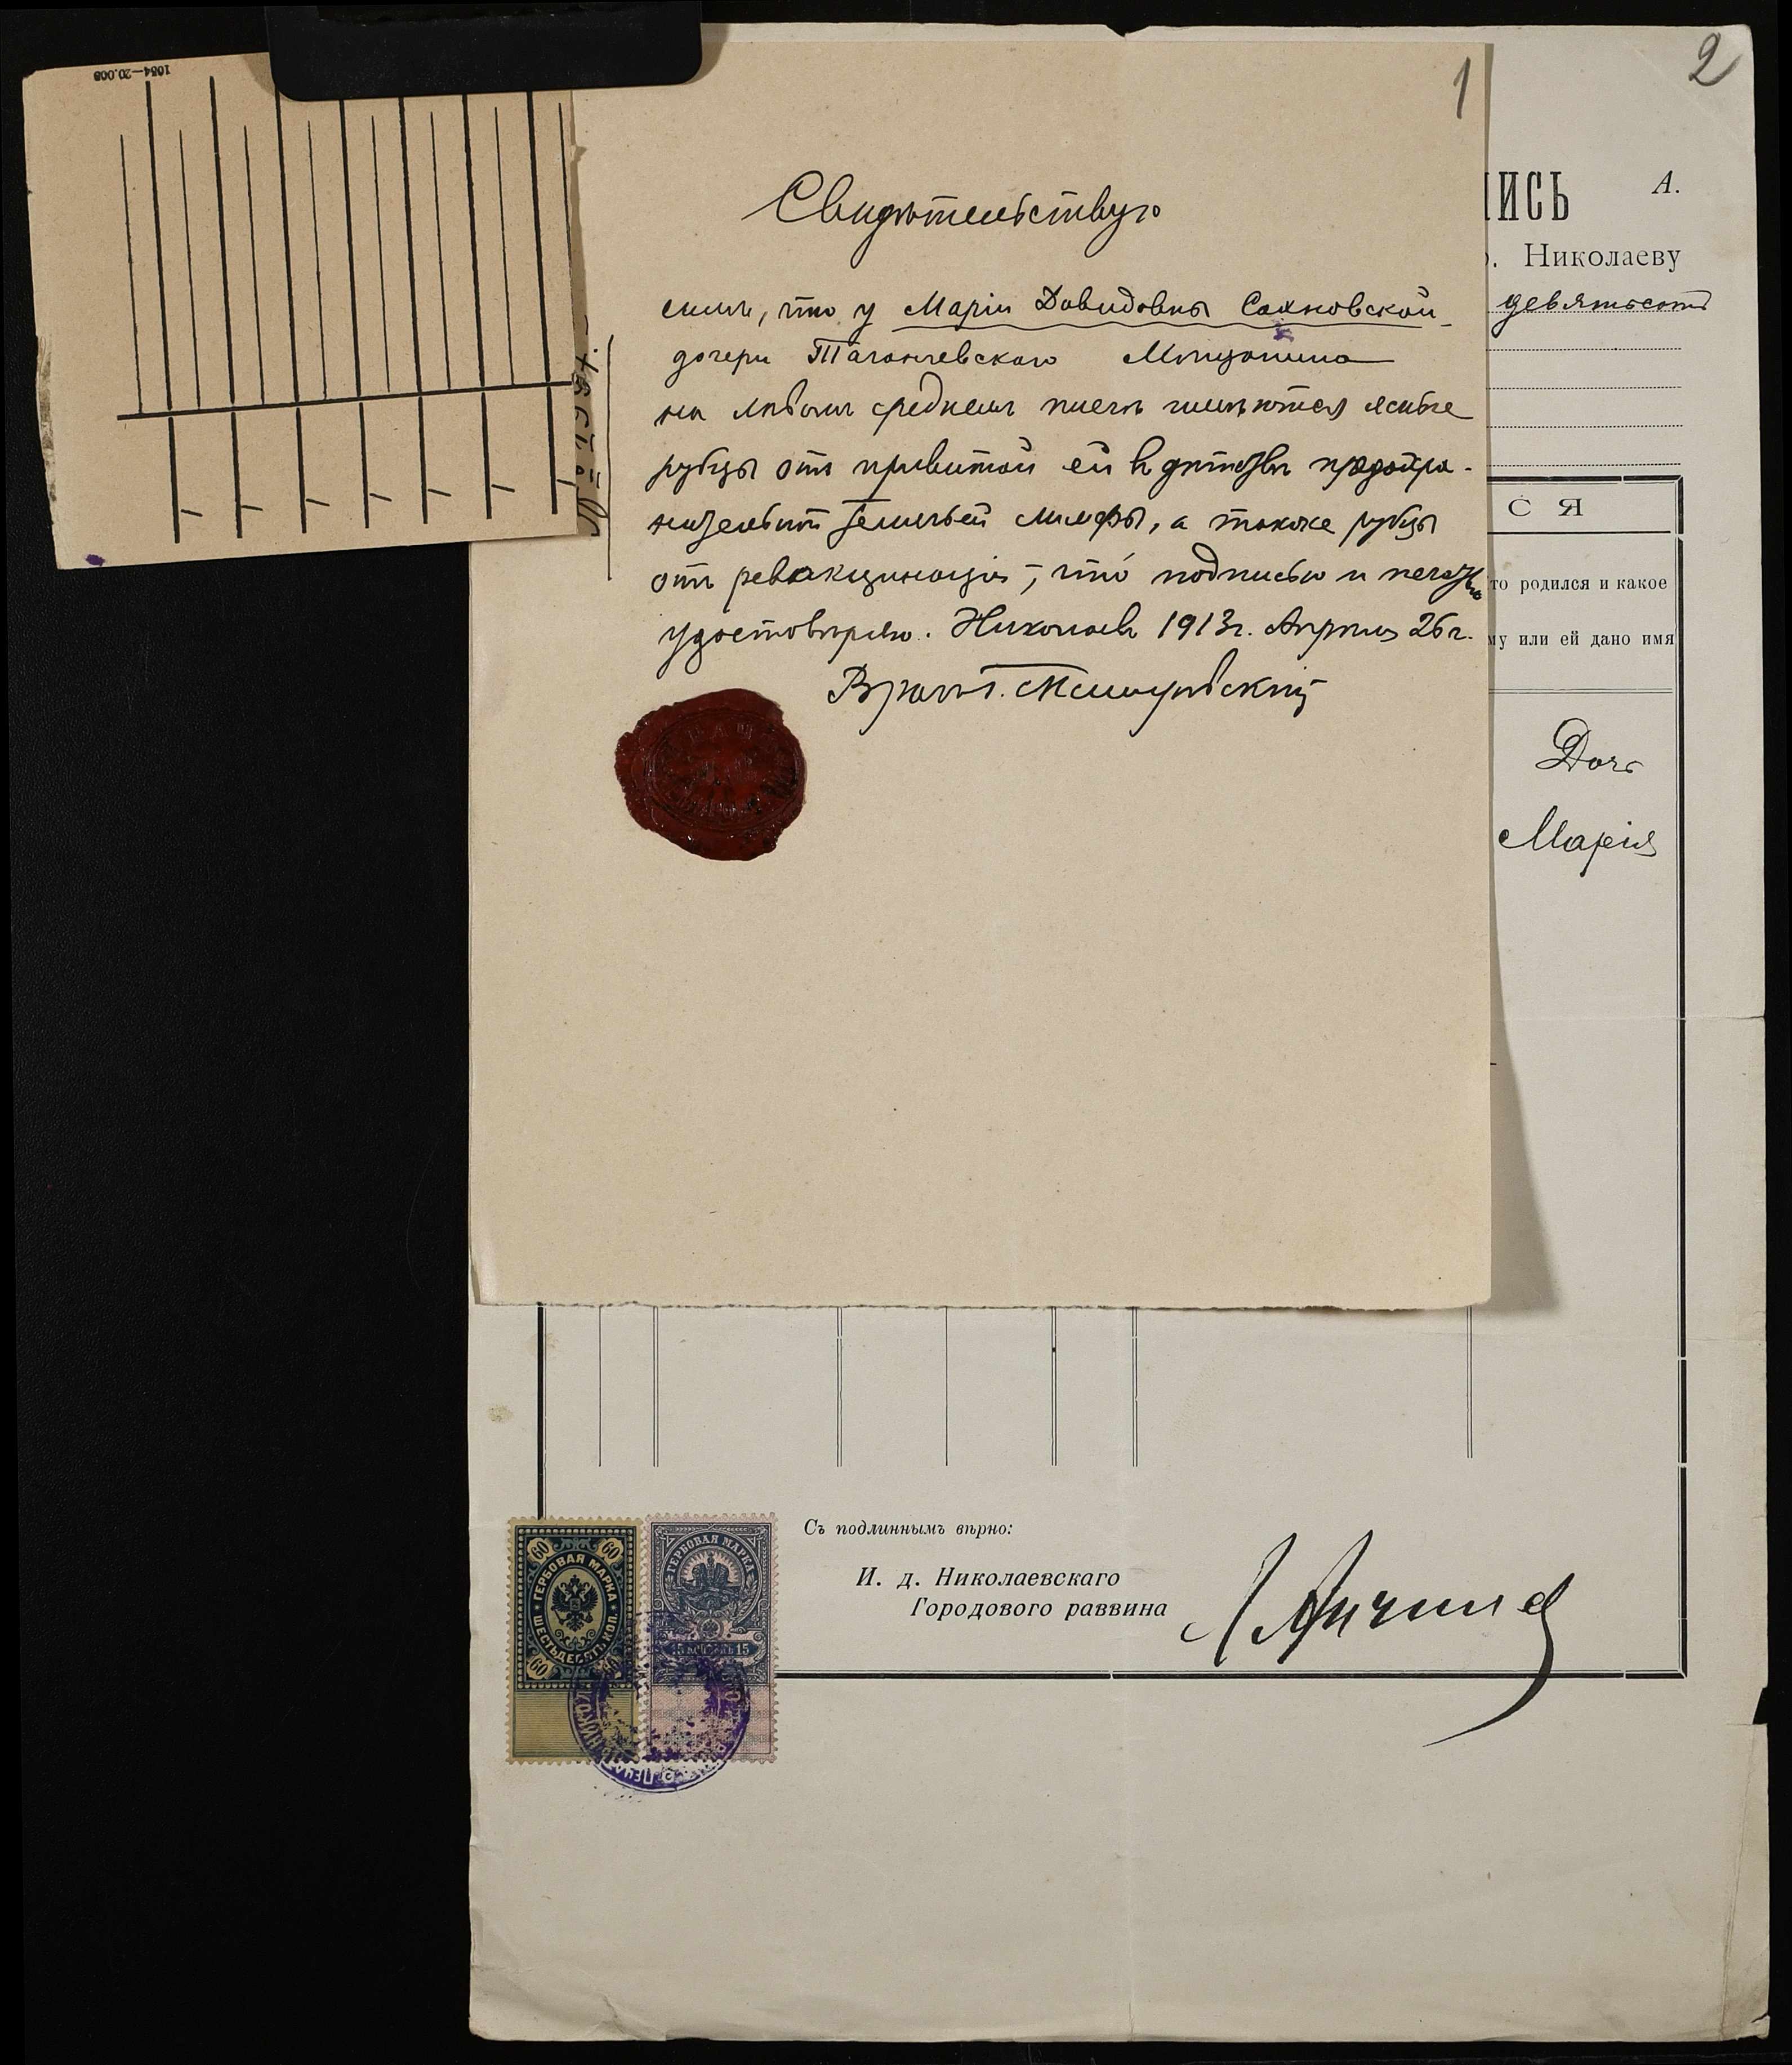 1
2
Свидѣтельствую
симъ, что у Маріи Давидовны Сахновской
дочери Таганчевскаго Мѣщанина
на лѣвомъ среднемъ плечѣ имѣются ясные
рубцы отъ привитой ей въ дѣтствѣ предохра-
нительной телячьей лимфы, а также рубцы
отъ ревакцинаціи, что подписью и печатью
удостовѣряю. Николаевъ 1913г. Апрѣля 26г.
Врачъ
ПИСЬ
А.
г. Николаеву
девятьсотъ
С Я
то родился и какое
му или ей дано имя
Дочь
Марія
Съ подлиннымъ вѣрно:
И. д. Николаевскаго
Городового раввина
60 60
ГЕРБОВАЯ МАРКА
ШЕСТЬДЕСЯТЪ КОП.
60
ГЕРБОВАЯ МАРКА
15 КОПѢЕКЪ 15
1084—20.008